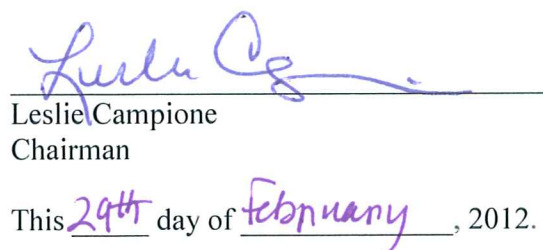 Leslie Campione
Leslie Campione
Chairman
This 29th day of February, 2012.